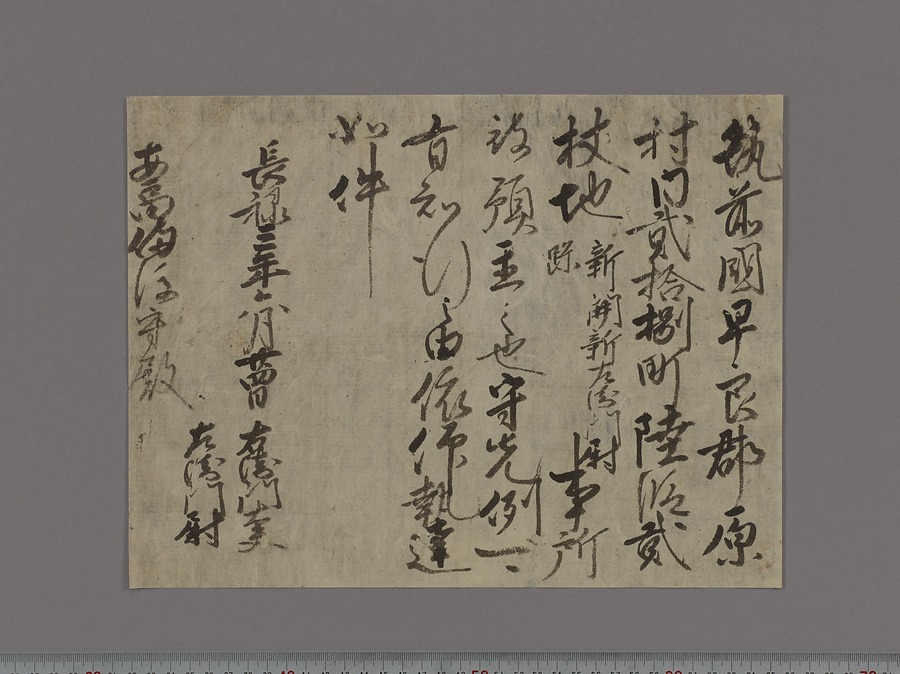 筑前國早良郡原
村内貳拾捌町陸段貳
杖地 新開新左衛門尉跡 事所
被預置之也守先例可
有知行之由依仰執達
如件
長禄三年六月廿日 左衛門
左衛門尉
守殿